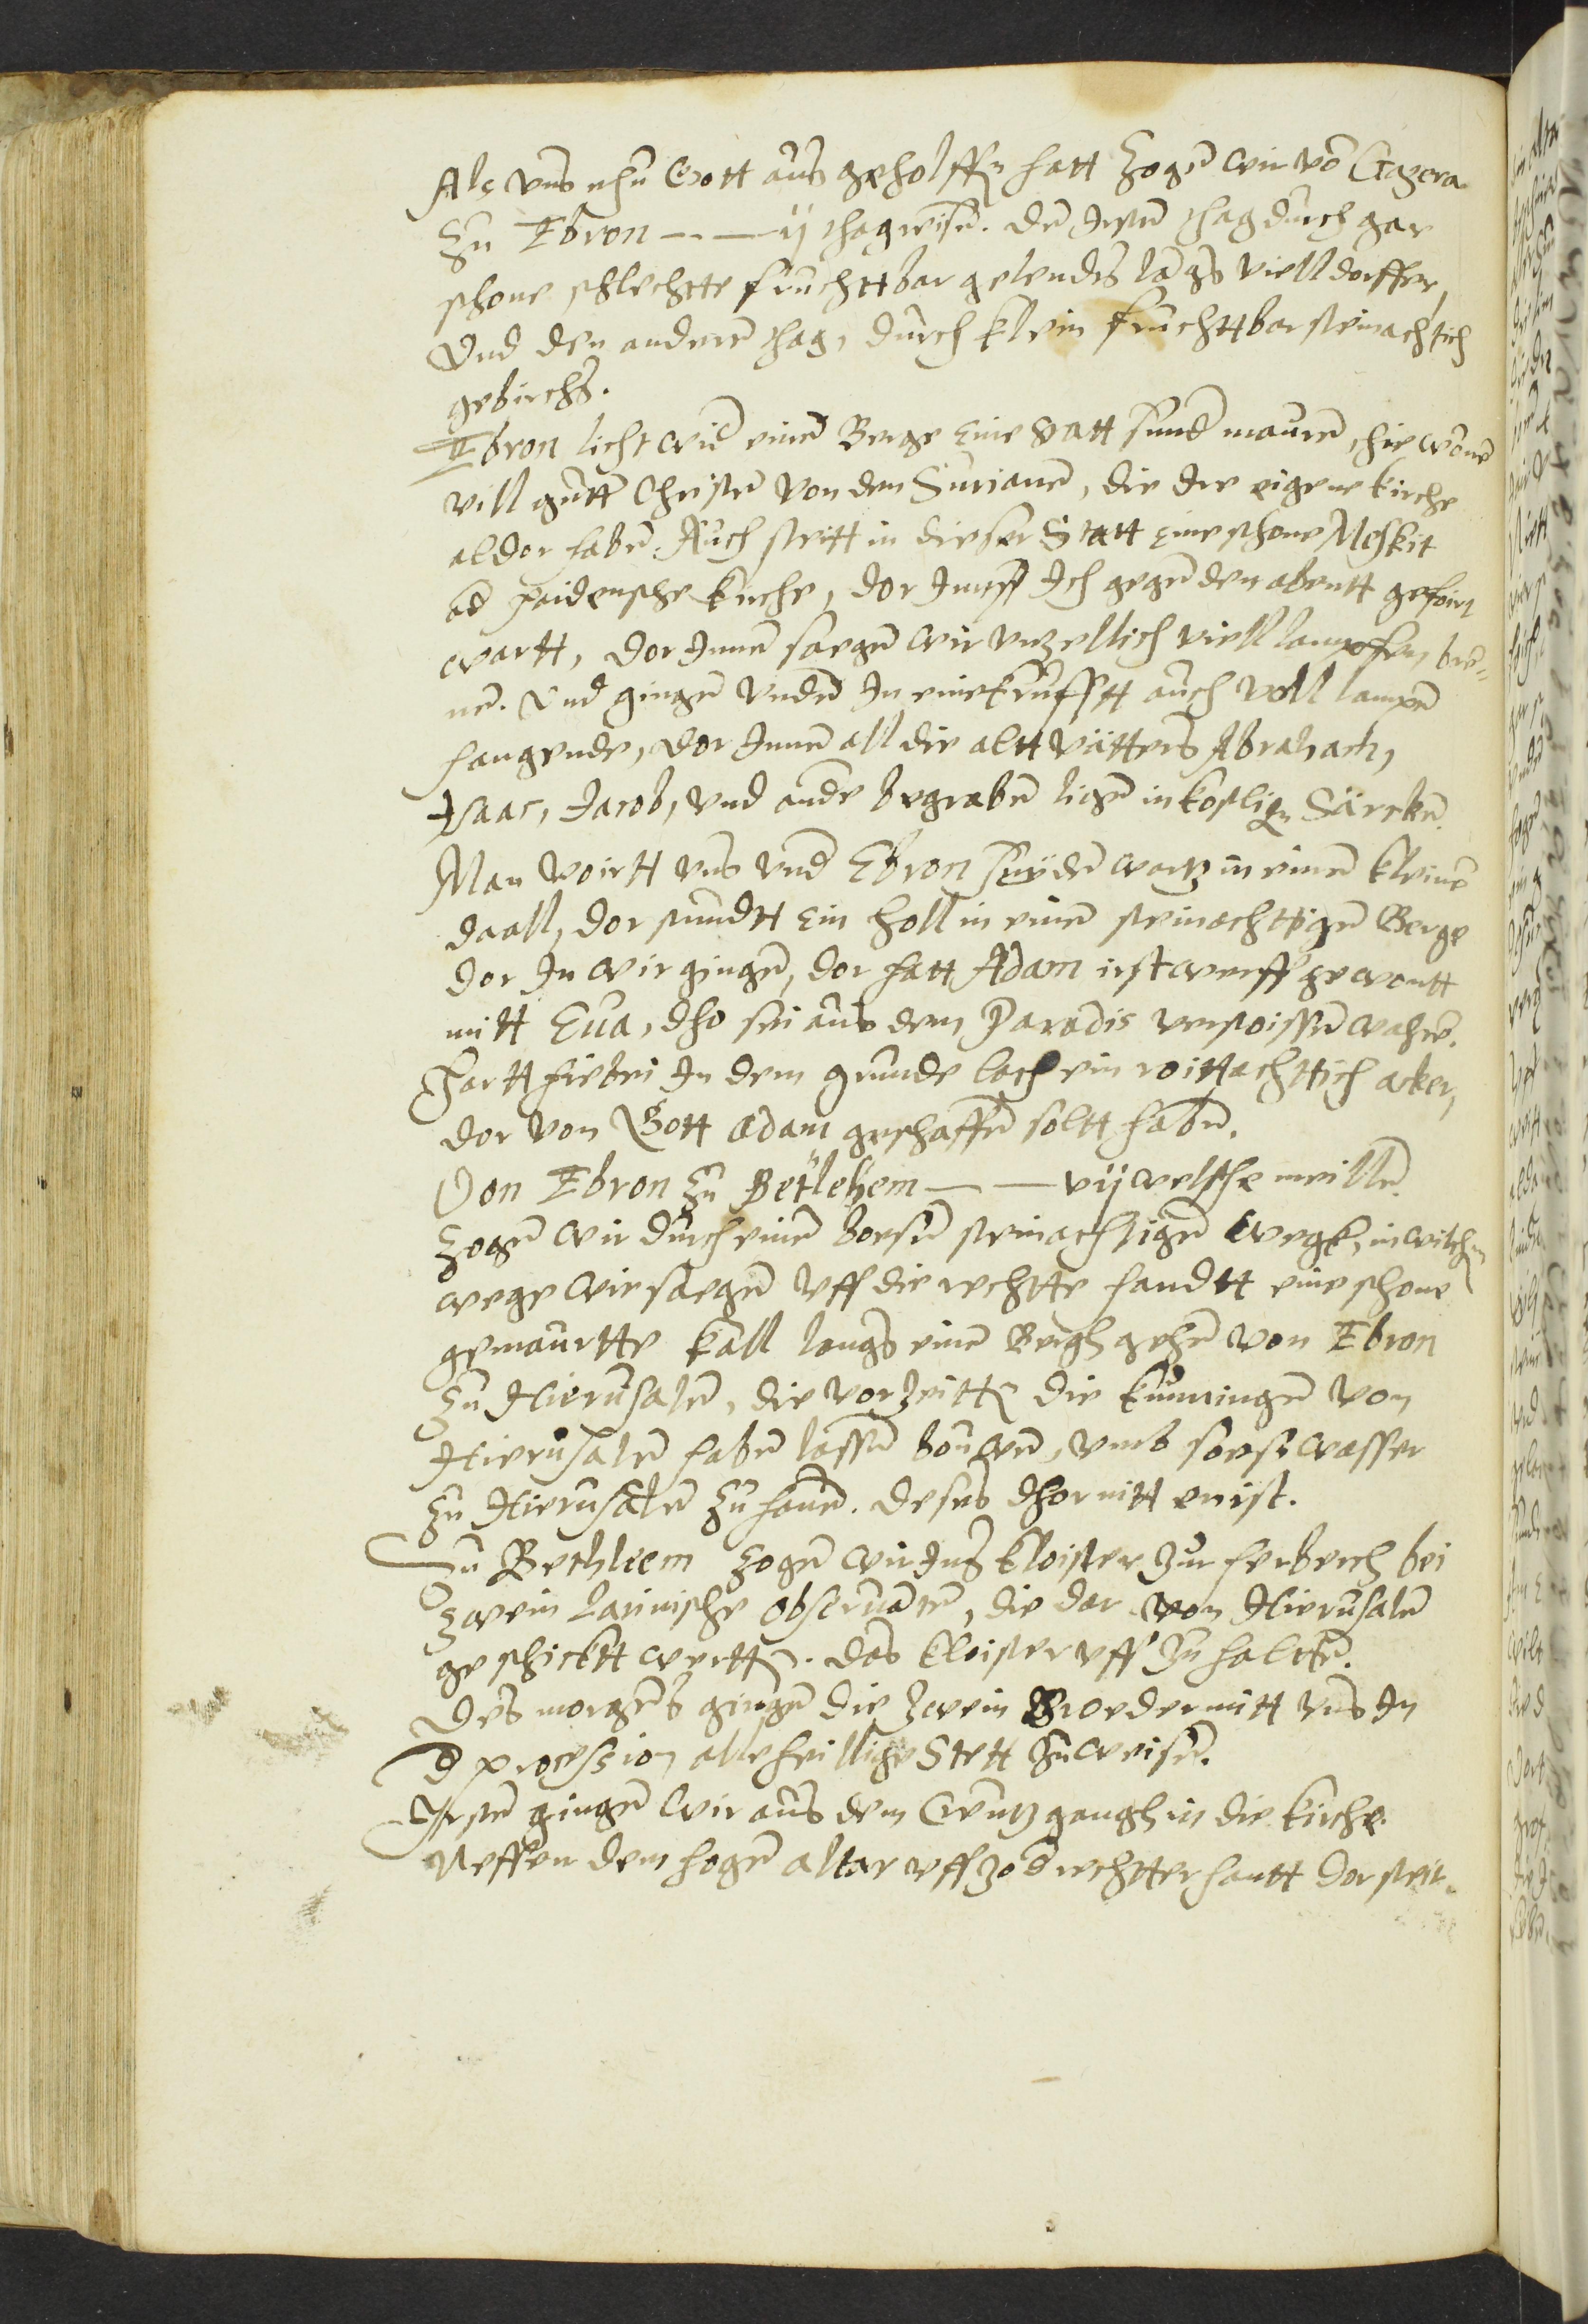 Als uns nhu Gott aus geholffen hatt zogen wir von Gazera
zu Ebron — — ij thagreisen. den Irsten thag durch gar
schone schlechtte fruchttbar gelendes langs viell dorffer,
Und den anderen thag, durch klein fruchttbar steinachtich
gebirchs.
Ebron licht wid einen Berge Eine Statt sund mauren, hie wonen
vill gutte Christen von den Surianen, die Ire eigene kirche
aldor haben. Auch steitt in dieser Statt Eine schone Meskit
od heidensche kirche, dor Inne Ich gegen den abentt gefoirt
wartt, dor Innen saegen wir unzellich viell lampen bre-
nen. Und gingen unden In eine krufftt auch voll lampen
hangende, dor Innen all die altt vätters Abraham,
Isaac, Jacob, und andre begraben ligen in kostligen Särcken.
Man voirtt uns und Ebron suyden wartz in einen kleinen
daall, dor stundtt Ein holl in einen steinachttigen Berge
dor In wir gingen, dor hatt Adam irstwerff gewontt
mitt Eva, dho sei aus dem Paradis verstoissen wahren.
Hartt hiebei In dem grunde lach ein roittachttich acker,
dor von Gott Adam geschaffen soltt haben.
Von Ebron zu Betlehem — — vij welsche meillen.
zogen wir durch einen boesen steinachtigen wegk, in wilchen
wege wir saegen uff die rechtte handtt eine schone
gemaurtte kall langs einen Bergh gehen von Ebron
zu Hierusalem, die vorzeitten die kunningen von
Hierusalem haben lassen bouwen, umb soess wasser
zu Hierusalem zu haven. deses dhor nitt en ist.
Zu Bethleem zogen wir Ins kloister zur herberch bei
zwein latinische observanten, die dar von Hierusalem
geschicktt wertten. das kloister uff zu haltten.
Des morgens gingen die zwein Broeder mitt uns In
d procession alle heillige Stett zu weisen.
Irsten gingen wir aus dem Creutzgangh in die kirche.
Neffen dem hogen altar uff zod rechtter hantt dor steit